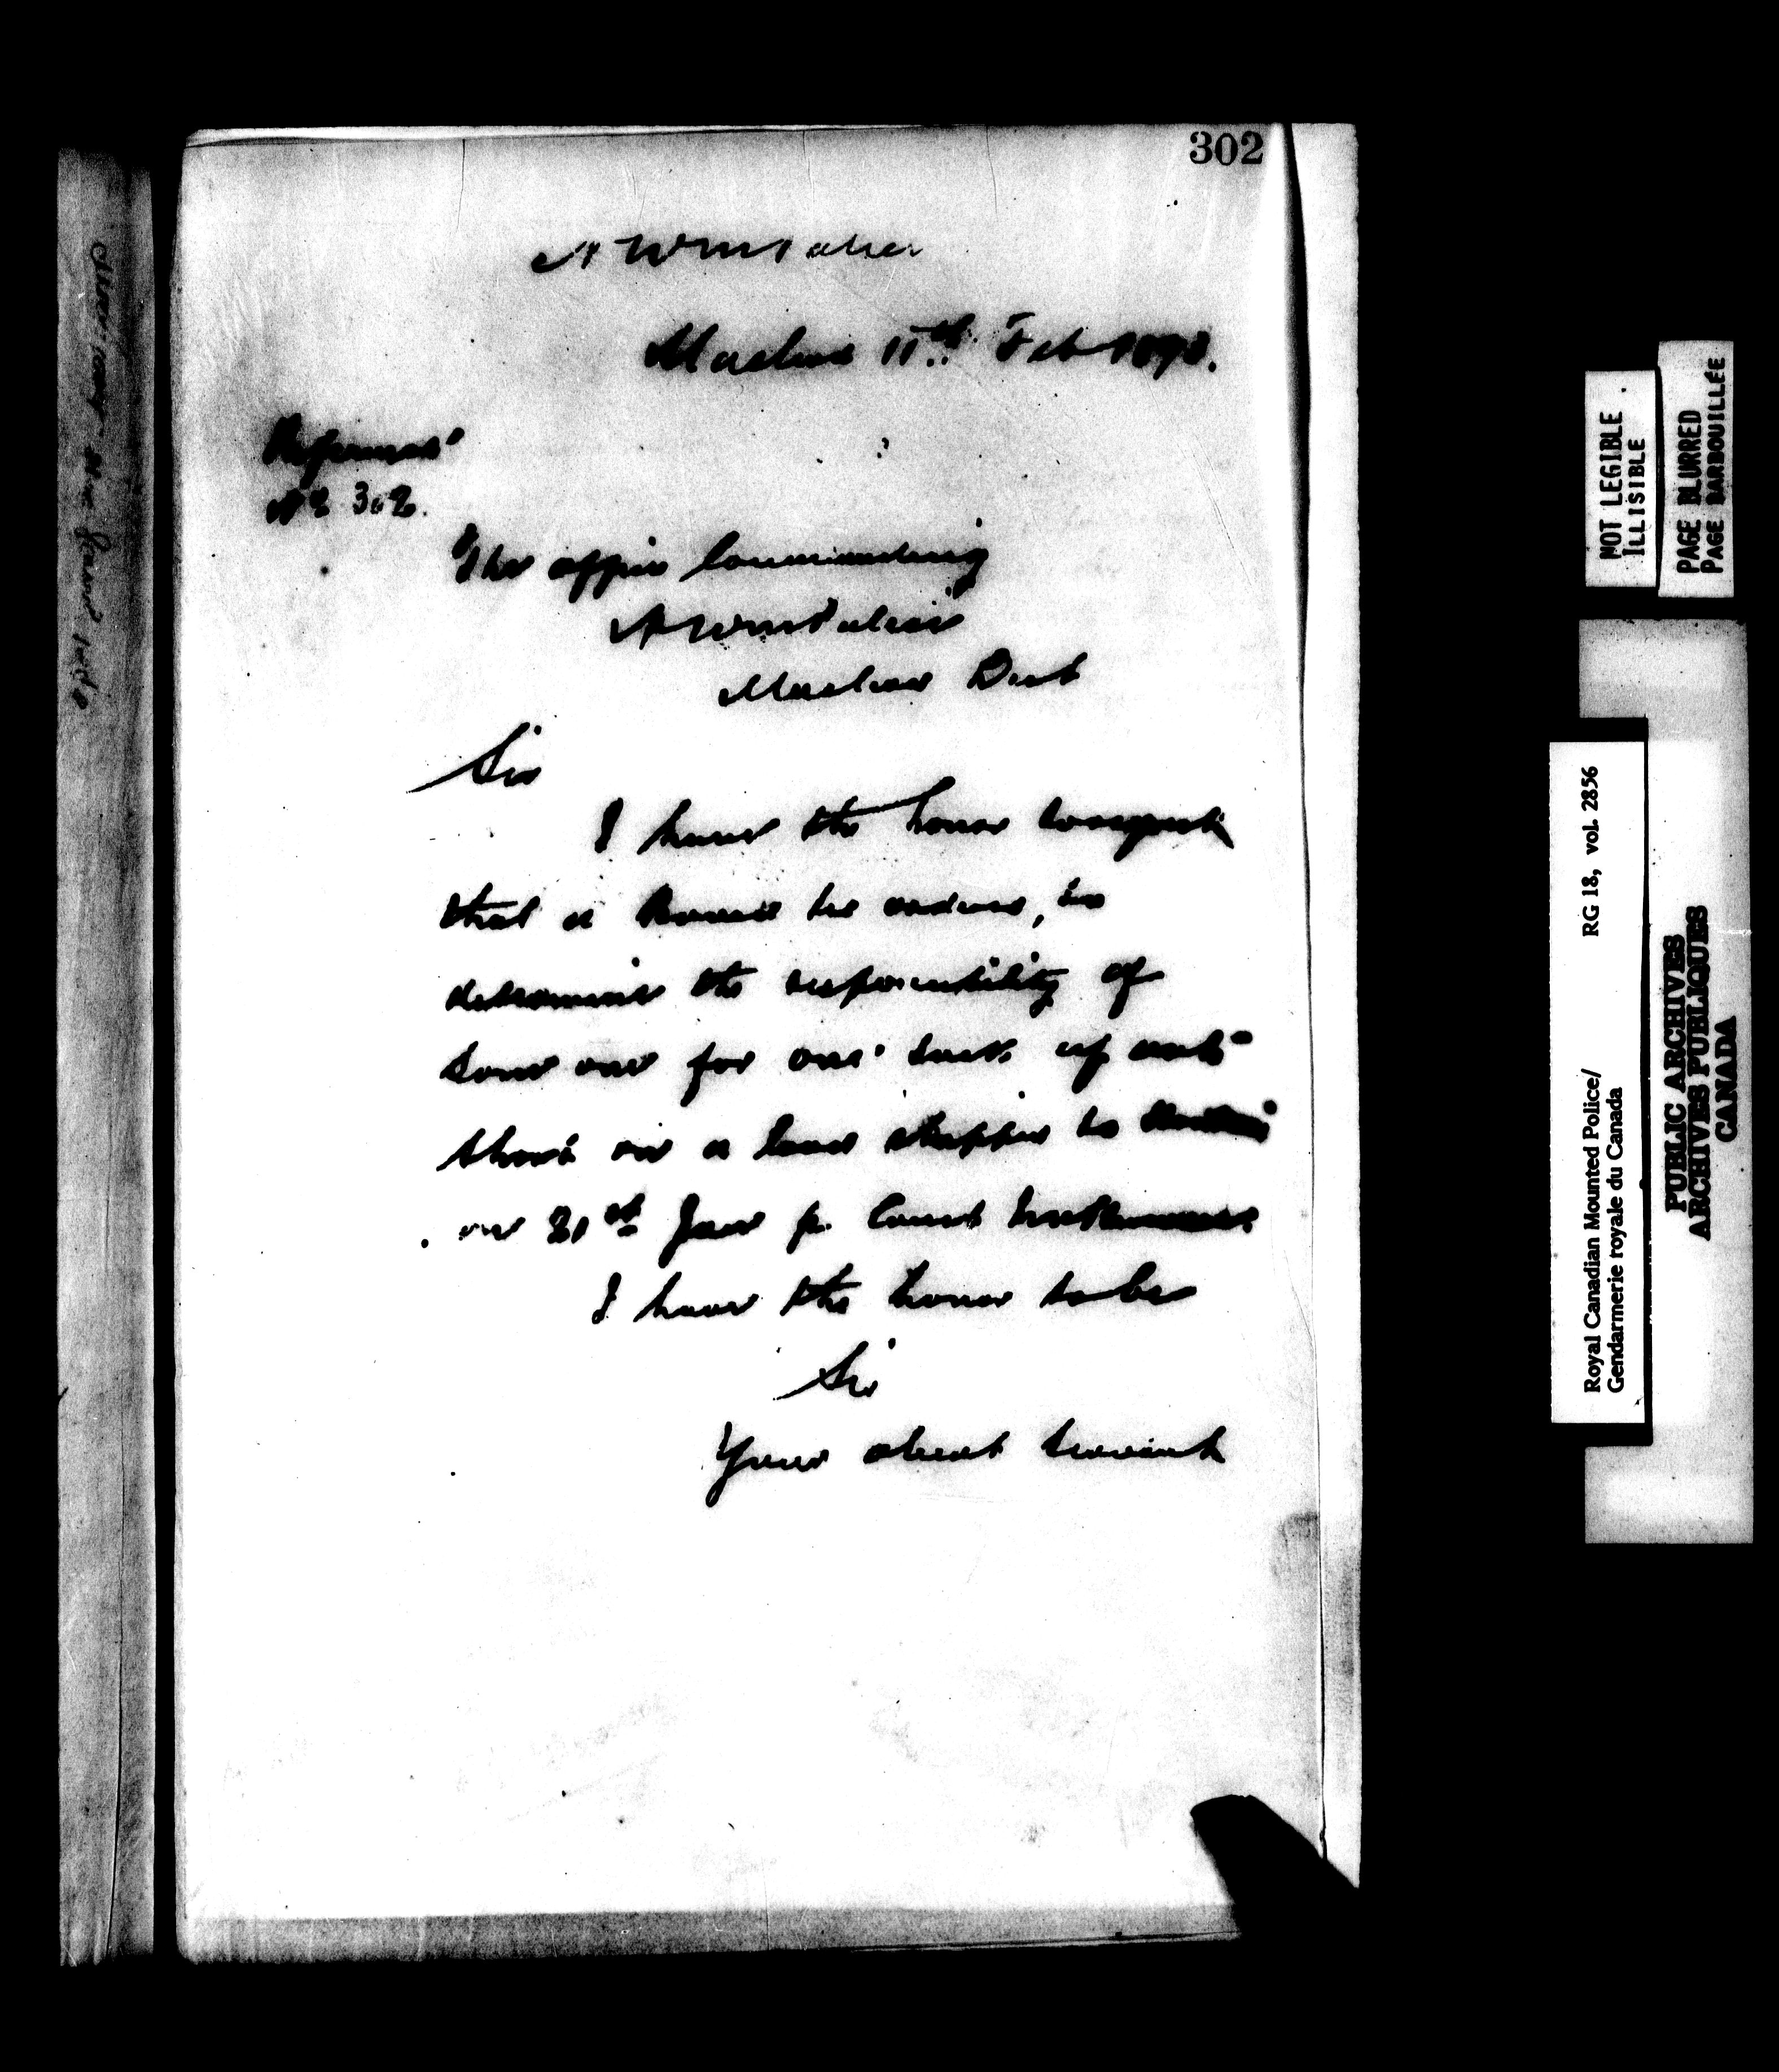 302
N W M Police
Macleod 11th Feb 1898.
Reference
No 302.
The Officer Commanding
N W M Police
Macleod Dist
Sir
I have the honor to request
that a Board be ordered, to
determine the responsibility of
some one for one sack of oats
short in a load shipped to
on 31st Jan p. Const
I have the honor to be
Sir
Your obedt servant
NOT LEGIBLE
ILLISIBLE
PAGE BLURRED
PAGE BARBOUILLÉE
Royal Canadian Mounted Police/
Gendarmerie royale du Canada
RG 18, vol. 2856
PUBLIC ARCHIVES
ARCHIVES PUBLIQUES
CANADA